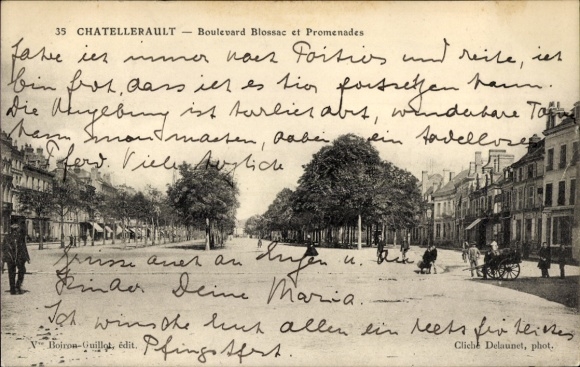 35 CHATELLERAULT — Boulevard Blossac et Promenades
Fahre ich immer nach Poitiers und reite, ich
bin froh, dass ich es hier fortsetzen kann.
Die Umgebung ist herrlichst, wunderbare
kann man machen, dabei ein tadelloses
Pferd. Viele herzliche
Grüsse auch an u. die
Kinder Deine Maria.
Ich wünsche Euch allen ein recht fröhliches
Pfingstfest.
Vve Boiron-Guillot, édit.
Cliché Delaunet, phot.